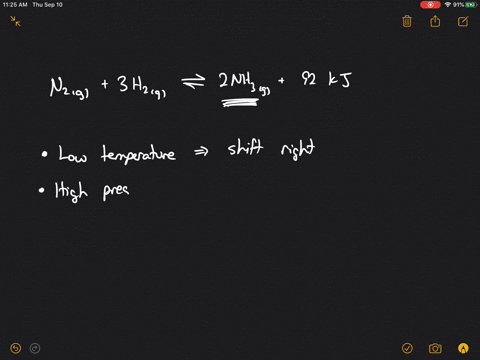 11:25 AM Thu Sep 10 91%
N₂(g) + 3H₂(g) ⇌ 2NH₃(g) + 92 kJ
• Low temperature ⇒ shift right
• High pres